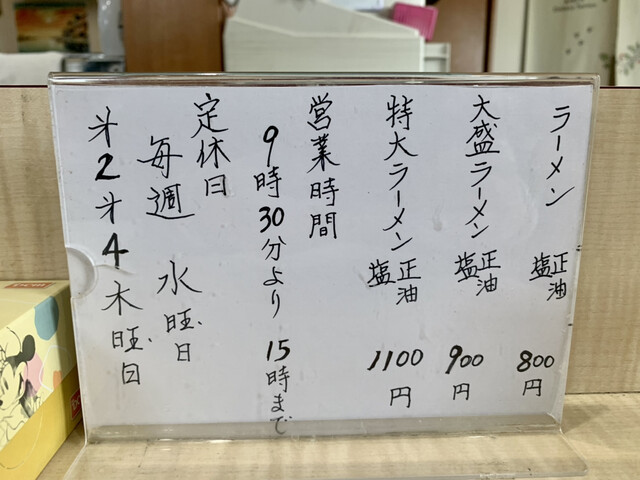 ラーメン 正油 塩 800円
大盛ラーメン 正油 塩 900円
特大ラーメン 正油 塩 1100円
営業時間
9時30分より 15時まで
定休日
毎週 水曜日
第2 第4 木曜日